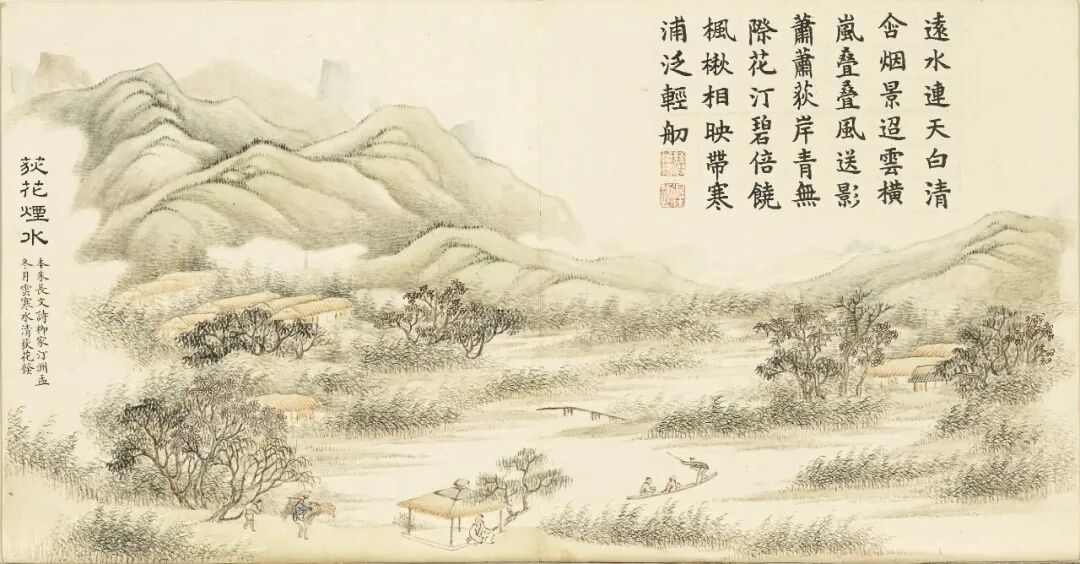 遠水連天白清
含烟景迢雲橫
嵐疊疊風送影
蕭蕭荻岸青無
際花汀碧倍饒
楓楸相映帶寒
浦泛輕舠
荻花煙水
本朱長文詩柳家汀洲孟
冬月雲寒水清荻花發